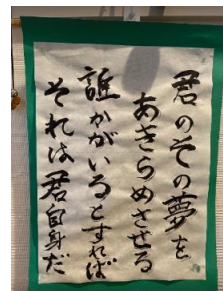 君のその夢を
あきらめさせる
誰かがいるとすれば
それは君自身だ